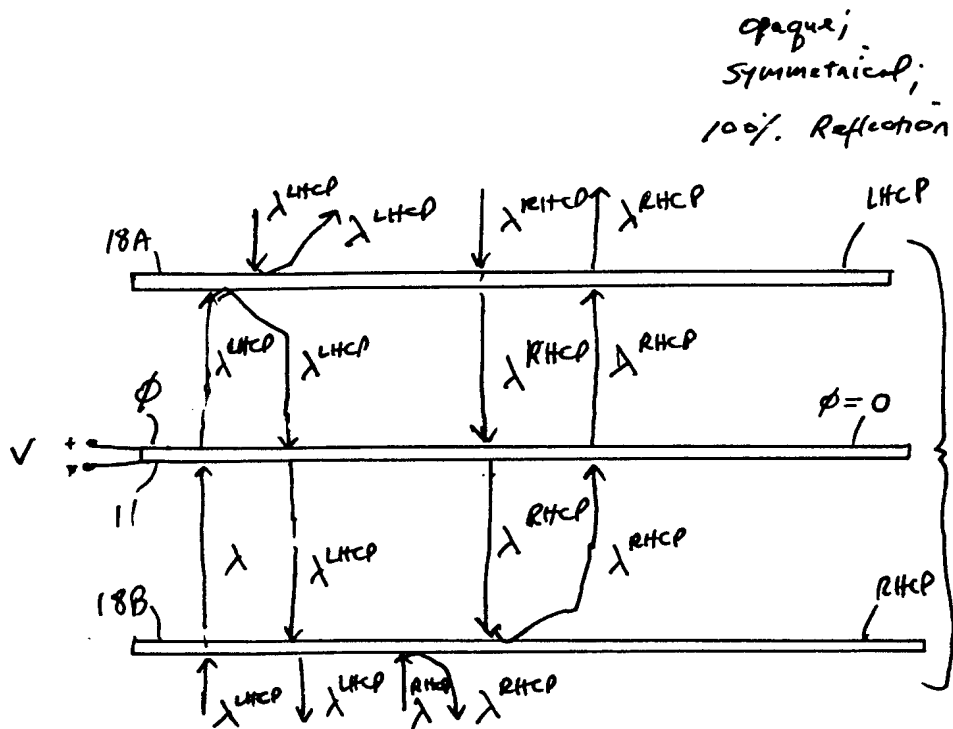 opaque;
symmetrical;
100%. Reflection
λ^LHCP λ^LHCP λ^RHCP λ^RHCP LHCP
18A
λ^LHCP λ^LHCP λ^RHCP λ^RHCP
φ φ = 0
V + -
11
λ λ^LHCP λ^RHCP λ^RHCP
18B RHCP
λ^LHCP λ^LHCP λ^RHCP λ^RHCP